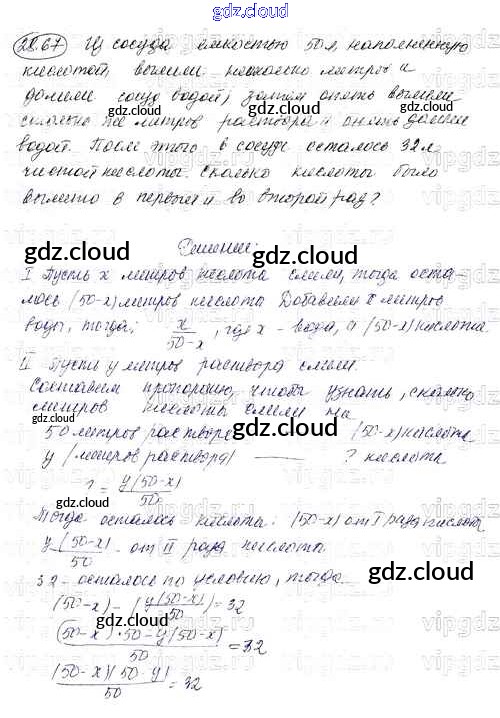 gdz.cloud
28.67 Из сосуда емкостью 50 л наполненную
кислотой, вылили несколько литров и
долили сосуд водой, затем опять вылили
столько же литров раствора и опять долили
водой. После этого в сосуде осталось 32 л
чистой кислоты. Сколько кислоты было
вылито в первый и во второй раз?
Решение:
gdz.cloud gdz.cloud
I Пусть x литров кислота слили, тогда оста-
лось (50-x) литров кислота Добавили x литров
воды, тогда: x/50-x, где x - вода, а (50-x) кислота.
II Пусть y литров раствора слили.
Составим пропорцию, чтобы узнать, сколько
литров кислоты слили на
50 литров раствора — (50-x) кислота
y (литров раствора) — ? кислота
gdz.cloud gdz.cloud
? = y(50-x)/50
Тогда осталось кислота: (50-x) от I раза кислота
y(50-x)/50 - от II раза кислота
32 - осталось по условию, тогда
(50-x) - (y(50-x)/50) = 32
(50-x)·50-y(50-x)/50 = 32
(50-x)(50-y)/50 = 32
gdz.cloud gdz.cloud
gdz.cloud gdz.cloud